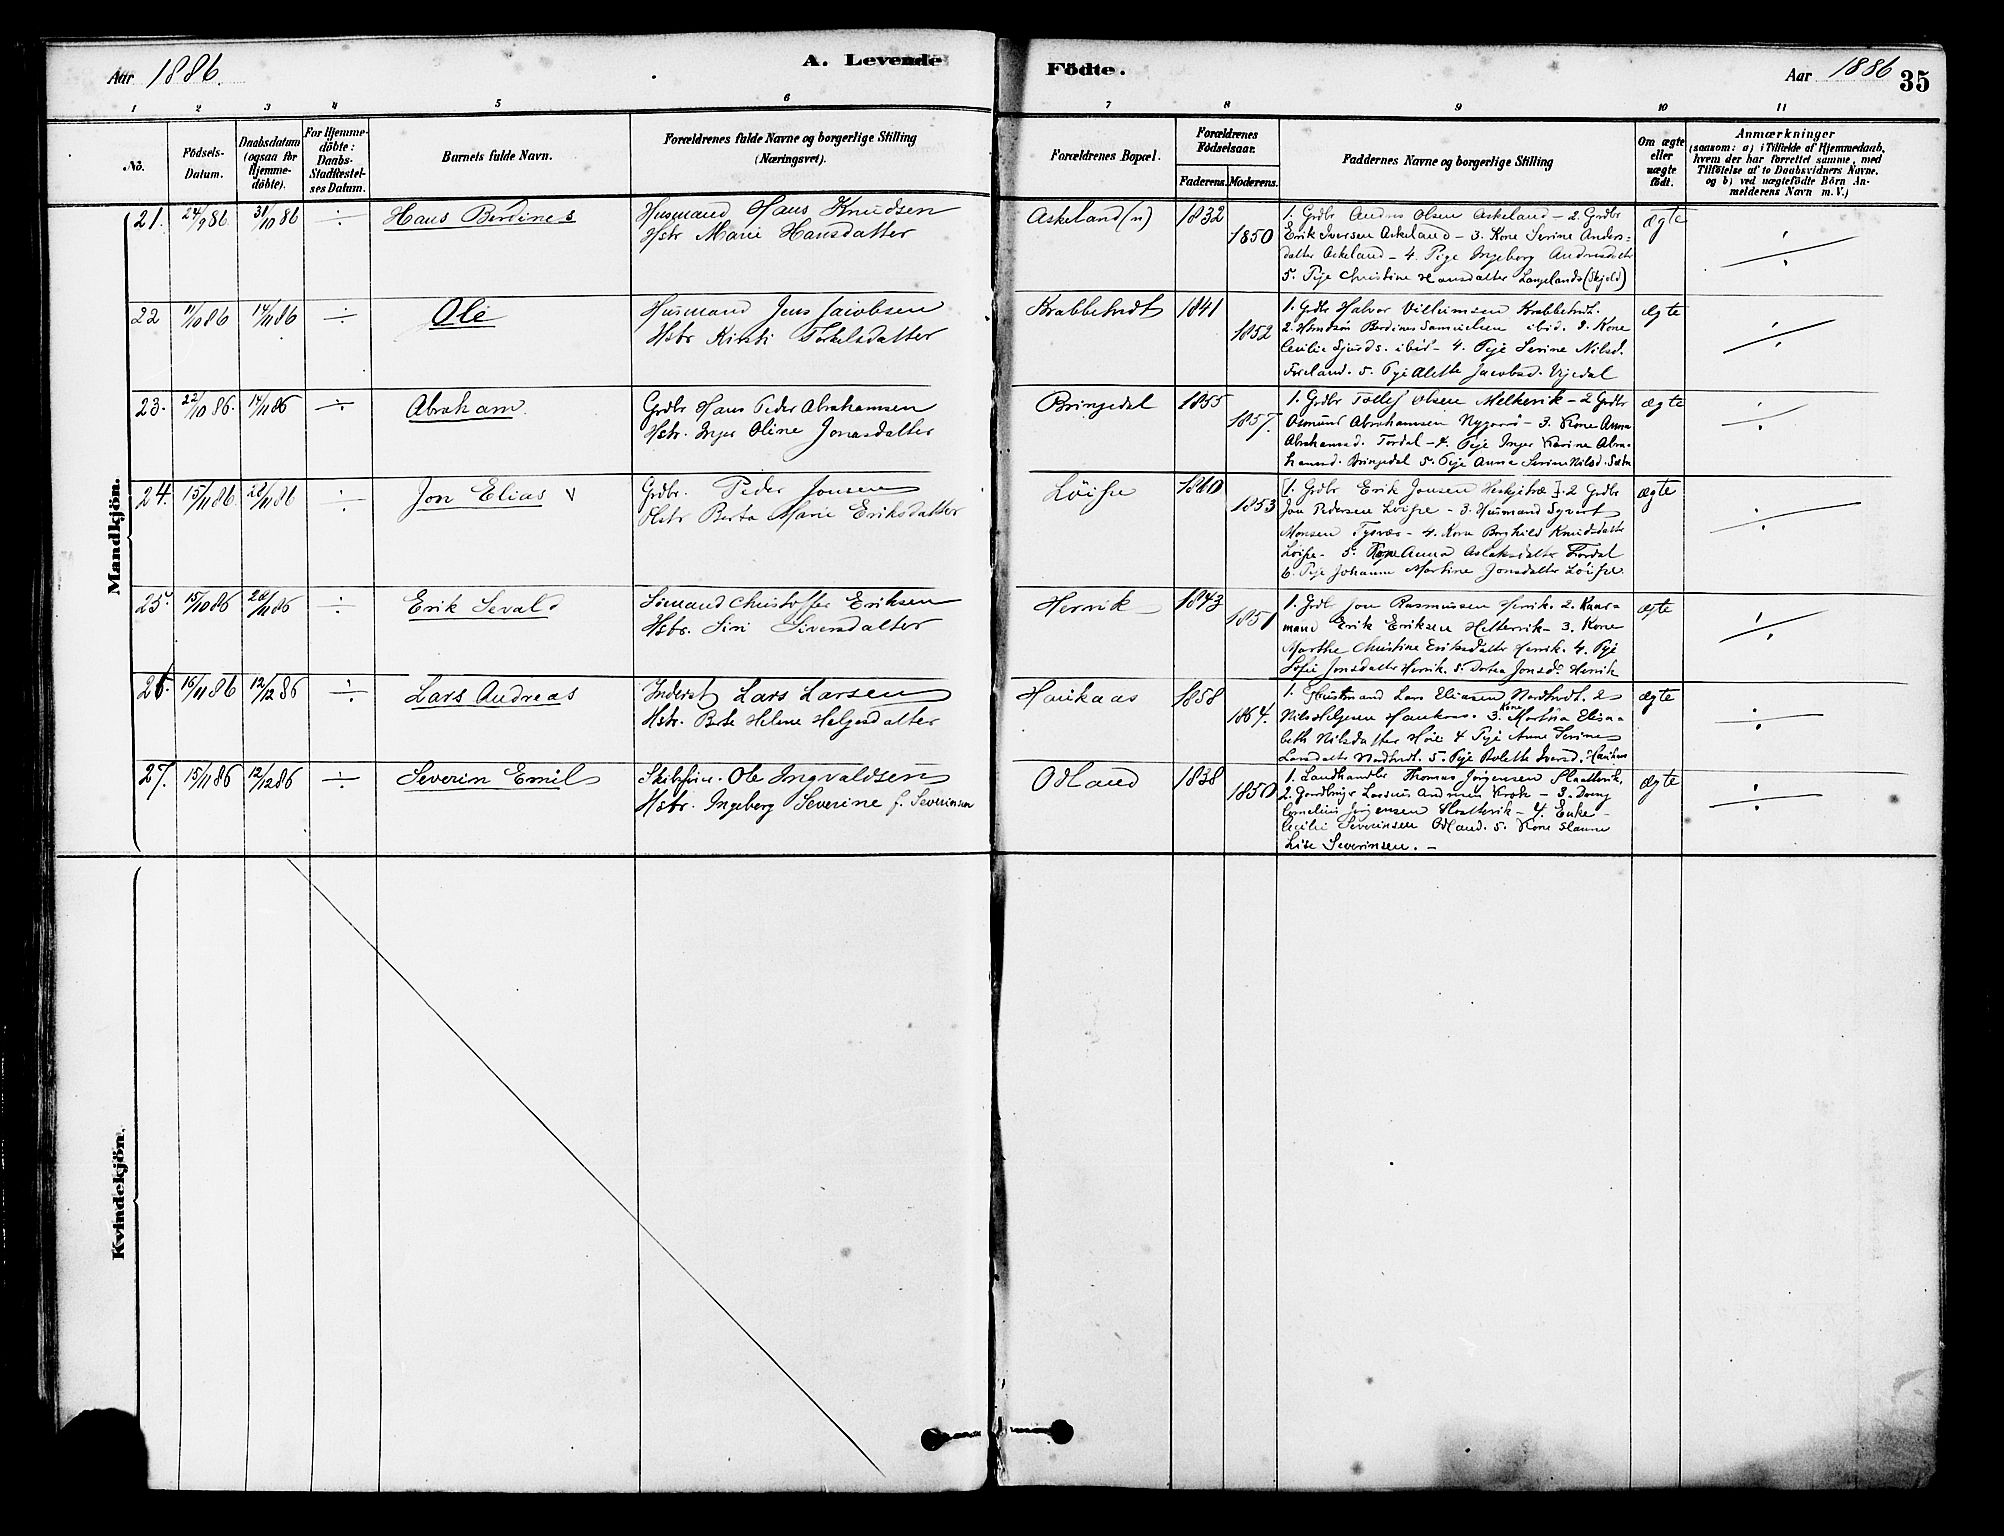 Aar 1886.
A. Levende Födte.
Aar 1886
35
1 2 3 4 5 6 7 8 9 10 11
No.
Födsels-Datum.
Daabsdatum (ogsaa for Hjemme-döbte).
For Hjemme-döbte: Daabs-Stadfæstel-ses Datum.
Barnets fulde Navn.
Forældrenes fulde Navne og borgerlige Stilling (Næringsvei).
Forældrenes Bopæl.
Forældrenes Födselsaar.
Faderens.
Moderens.
Faddernes Navne og borgerlige Stilling
Om ægte eller uægte födt.
Anmærkninger
(saasom: a) i Tilfælde af Hjemmedaab,
hvem der har forrettet samme, med
Tilföielse af to Daabsvidners Navne,
og b) ved uægtefödte Börn An-
melderens Navn m. V.)
Mandkjön.
21. 24/9 86 31/10 86 ÷ Hans Berdines
Husmand Hans Knudsen
Hstr Marie Hansdatter
Askeland (n) 1832 1850
1. Grdbr Andres Olsen Askeland – 2. Grdbr
Erik Iversen Askeland – 3. Kone Serine Anders-
datter Askeland – 4. Pige Ingeborg Andreasdatr
5. Pige Christine Hansdatter Langelands (Skjold)
ægte ÷
22 11/10 86 14/11 86 ÷ Ole
Husmand Jens Jacobsen
Hstr Kirsti Torkelsdatter
Krabbetvedt 1841 1852
1. Grdbr Halvor Vilhelmsen Krabbetvedt.
2. Berdines Samuelsen ibid. 3. Kone
Cecilie Sjurds. ibid – 4. Pige Serine Nilsd.
5. Pige Alette Jacobsd.
ægte ÷
23. 22/10 86. 14/11 86 ÷ Abraham.
Grdbr Hans Peder Abrahamsen
Hstr. Inger Oline Jonasdatter
Bringedal 1855 1857.
1. Grdbr Tollef Olsen Melkevik – 2 Grdbr
Osmund Abrahamsen – 3. Kone Anna
Abrahamsd. Tordal – 4. Pige Inger Karine Abra-
hamsd. Bringedal 5. Pige Anna Serine Nilsd.
ægte ÷
24. 15/11 86 28/11 86 ÷ Jon Elias v
Grdbr. Peder Jonsen
Hstr Berta Marie Eriksdatter
1853
[1. Grdbr Erik Jonsen]. 2 Grdbr
Jon Pedersen – 3. Husmand Syvert
Monsen Tysvær – 4. Kone Borghild Knudsdatter
– 5. Kone Anna Aslaksdatter Tordal
6. Pige Johanne Martine Jonsdatter
ægte ÷
25. 15/10 86 28/11 86 ÷ Erik Sevald
Sömand Christoffer Eriksen
Hstr. Siri Siversdatter
Hervik 1843 1851
1. Grdbr Jon Rasmussen Hervik. 2. Kaar-
mand Erik Eriksen Hettervik – 3. Kone
Marthe Christine Eriksdatter Hervik. 4. Pige
Sofie Jonsdatter Hervik. 5. Dortea Jonsd. Hervik
ægte ÷
26. 16/11 86 12/12 86 ÷ Lars Andreas
Inderst Lars Larsen
Hstr. Berte Helene Helgesdatter
Haukaas 1858 1864.
1. Husmand Lars Eliasen Nordtvedt. 2
Nils Helgesen Haukaas. 3. Kone Martha Elisa-
beth Nilsdatter 4 Pige Anne Serine
Larsdatter Nordtvedt. 5. Pige Bolette Iversd. Haukaas
ægte ÷
27. 15/11 86 12/12 86 ÷ Severin Emil
Skibsfører Ole Ingvaldsen
Hstr. Ingeborg Severine f. Severinsen
Odland 1838 1850
1. Landhandler Thomas Jörgensen Slaattevik.
2. Gaardbruger Rasmus Andersen Krok – 3. Dreng
Cornelius Jörgensen Slaattevik – 4. Enke
Cecilie Severinsen Odland. 5. Kone
Lise Severinsen. –
ægte ÷
Kvindekjön.